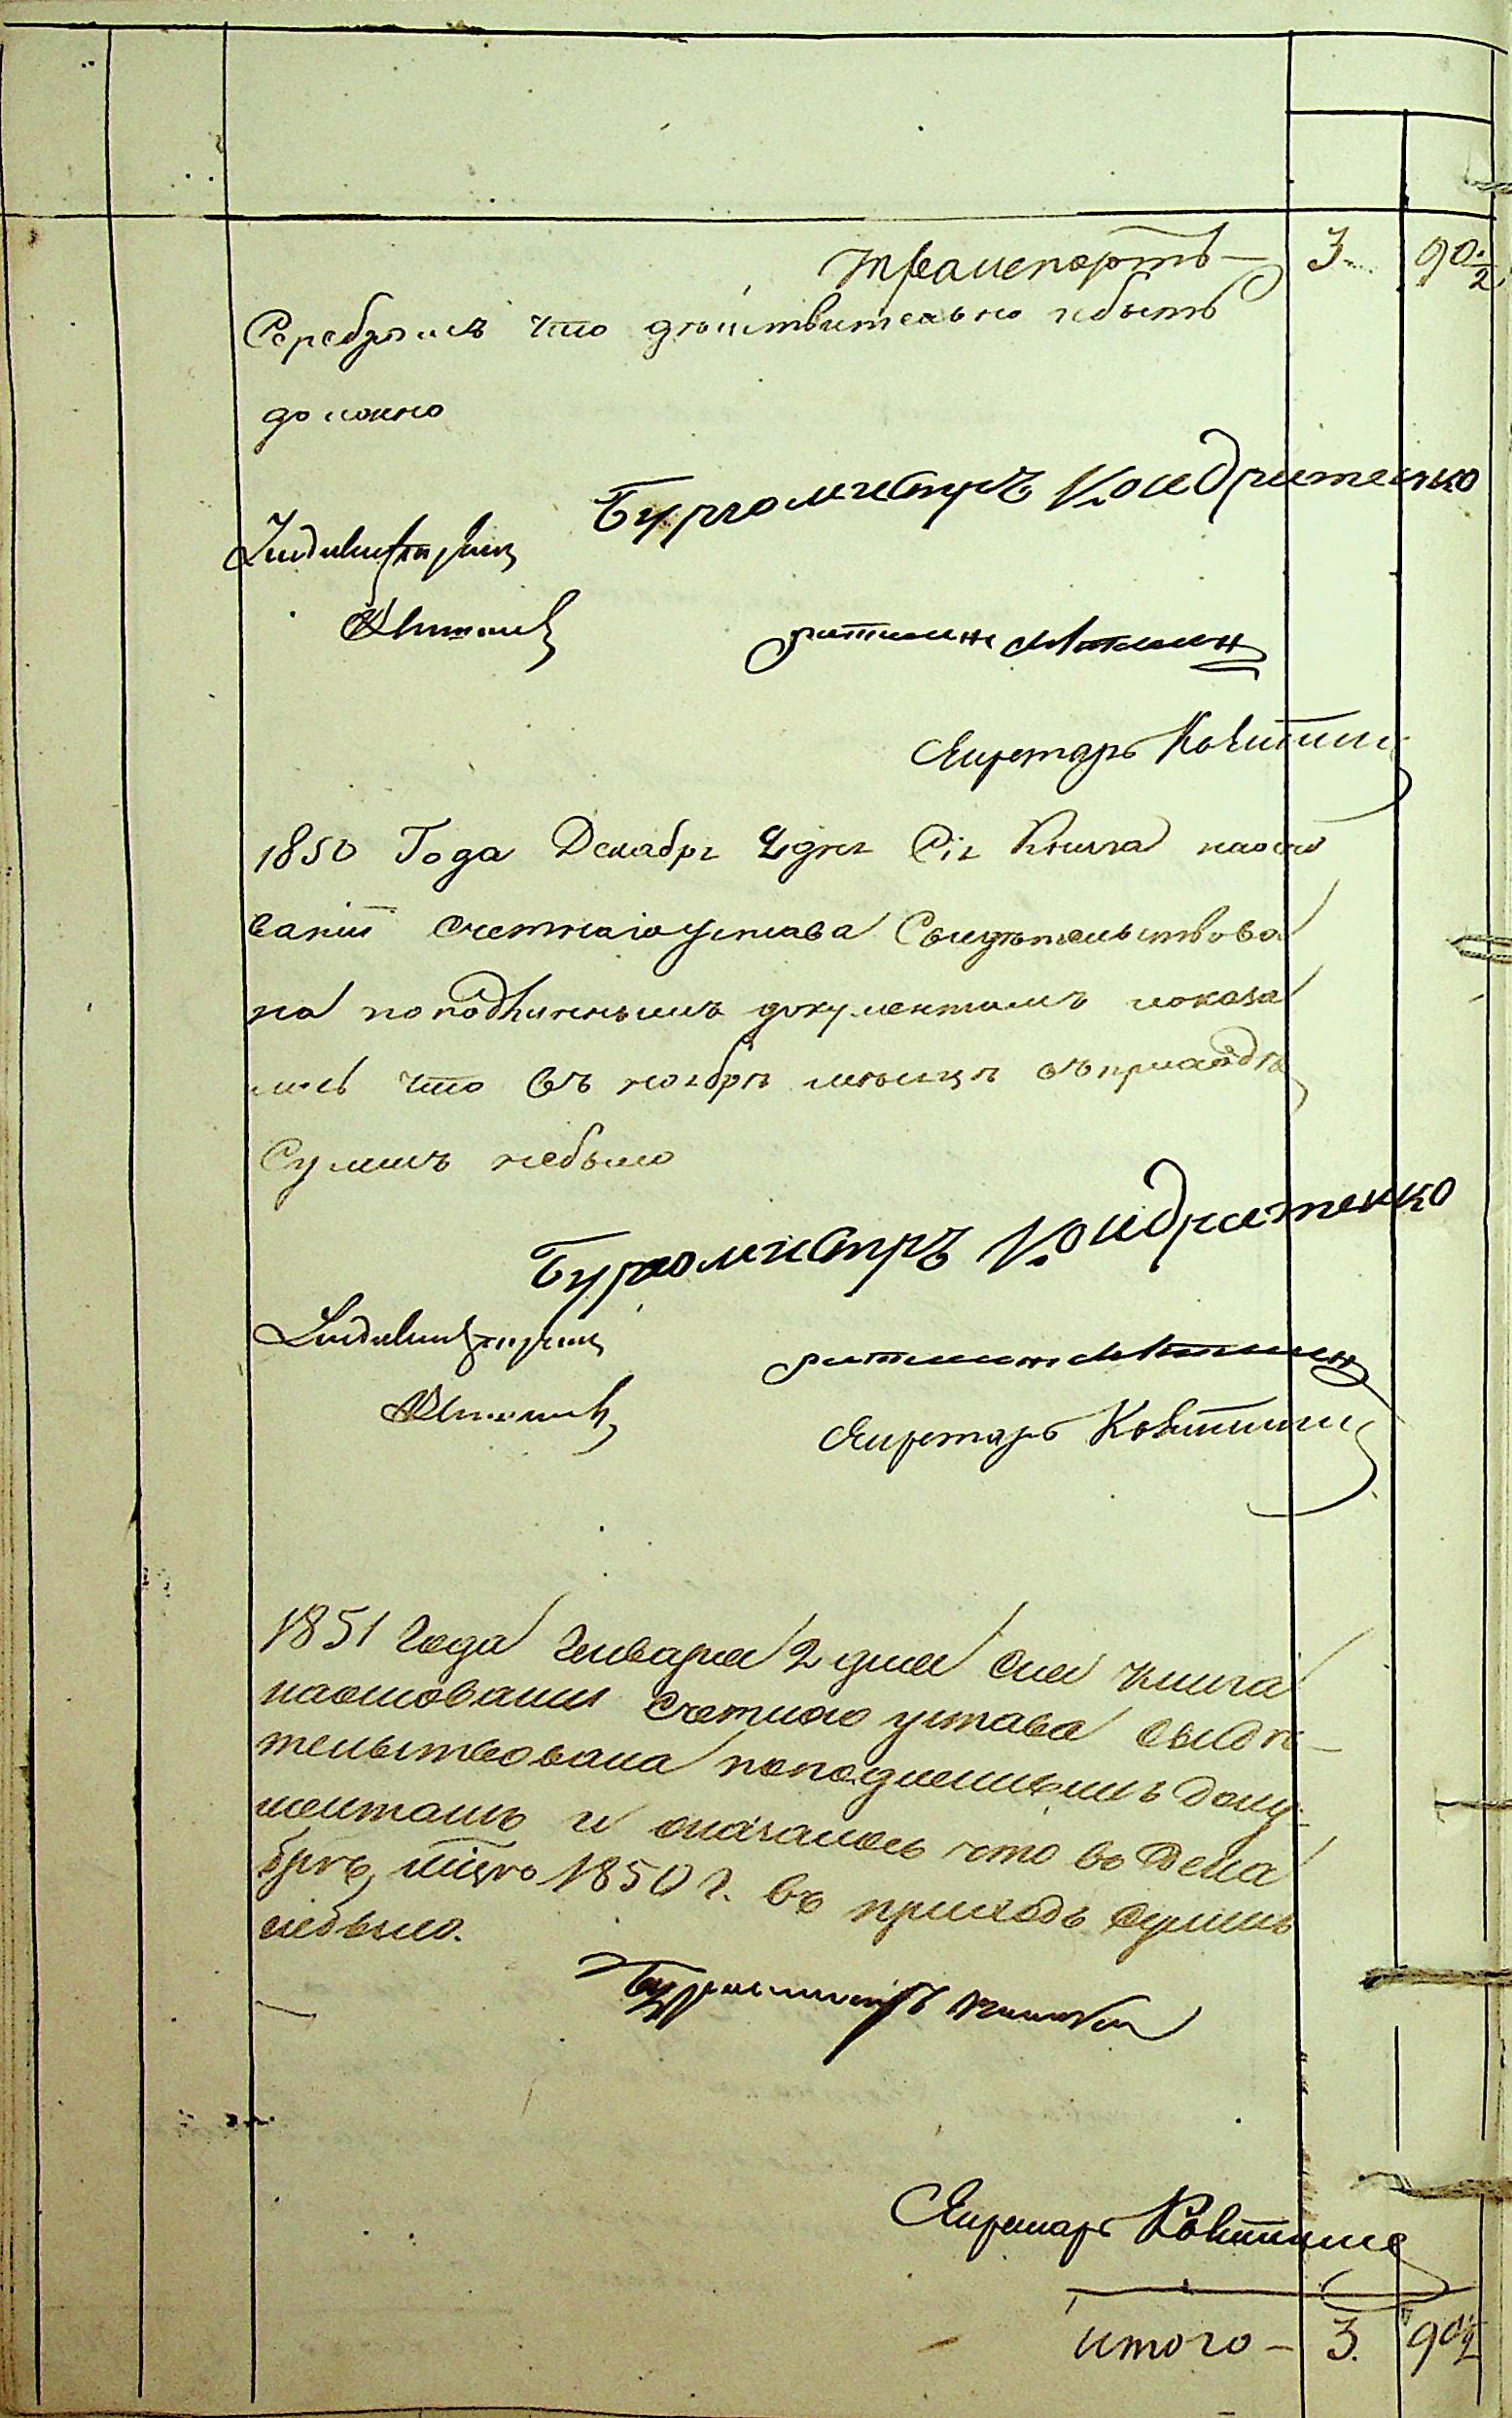 транспортъ — 3 90 1/2
Серебромъ что действительно ибыть
должно
Бургомистръ Кондратенко
Секретарь
1850 Года Декабря 2 дня Сія Книга наосно
ваніи счетнаго устава Свидѣтельствова
на поподлиннымъ документамъ показа
лось что въ ноябрѣ месяцѣ въ приходѣ
Суммъ небыло
Бургомистръ Кондратенко
Секретарь
1851 года Генваря 2 дня сия книга
наосновании счетного устава свидѣ-
тельствована поподлиннымъ доку-
ментамъ и оказалось что въ дека
брѣ мцѣ 1850 г. въ приходъ суммъ
небыло.
Секретарь
итого — 3. 90 1/2